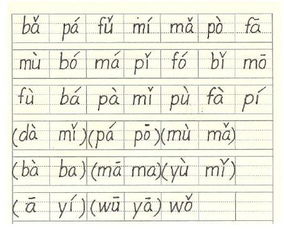 bǎ pá fǔ mí mǎ pò fā
mù bó má pǐ fó bǐ mō
fù bá pà mǐ pù fà pí
(dà mǐ)(pá pō)(mù mǎ)
(bà ba)(mā ma)(yù mǐ)
(ā yí)(wū yā) wǒ